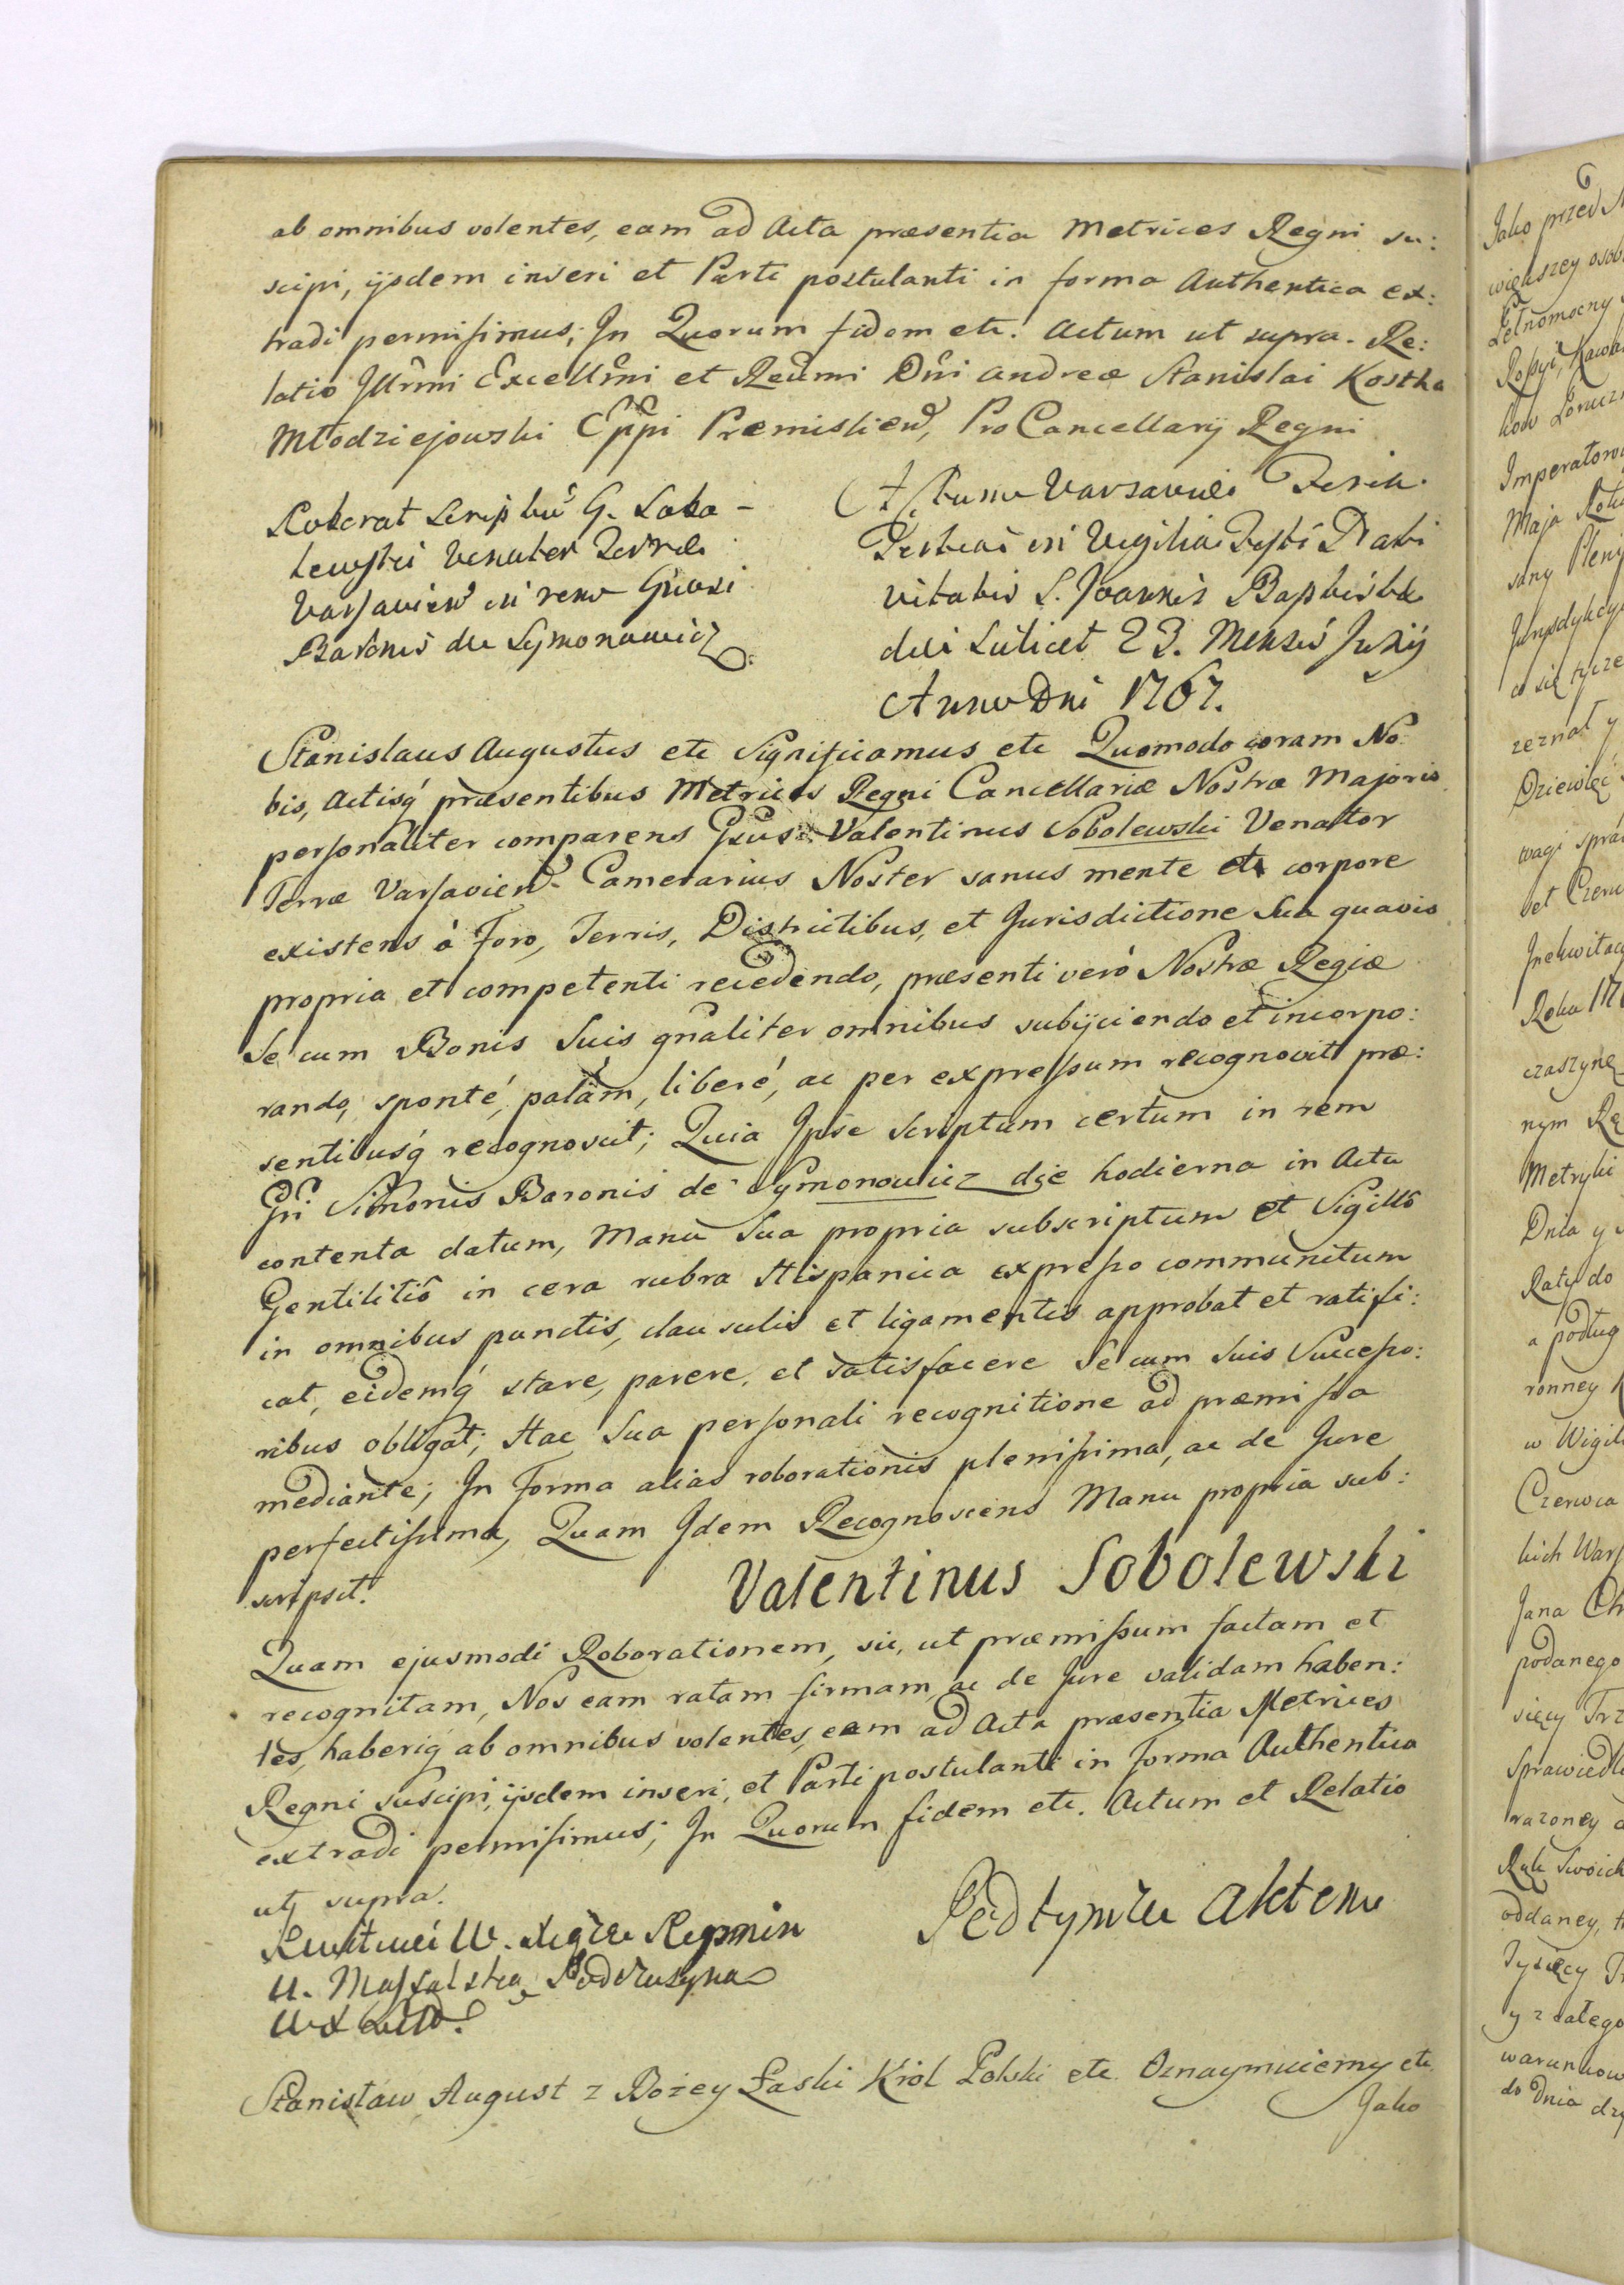 ab omnibus volentes, eam ad Acta præsentia Metrices Regni su:
scipi, ijsdem inseri et Parti postulanti in forma Authentica ex:
tradi permisimus; In Quorum fidem etc. Actum ut supra. Re:
latio Illrmi Excellmi et Reverendmi Dni Andreæ Stanislai Kostka
Młodziejowski Eppi Premislien, ProCancellarij Regni
Roborat Scriptum G. Sobo-
lewski Venator Terræ
Varsavien in rem Gnosi
Baronis de Symonowicz
Actum Varsaviæ Feria
Tertia in Vigilia Festi Nati
vitatis S. Joannis Baptistæ
die Scilicet 23. Mensis Junij
Anno Dni 1767.
Stanislaus Augustus etc Significamus etc Quomodo coram No
bis, Actisq præsentibus Metrices Regni Cancellariæ Nostræ Majoris
personaliter comparens Gnus Valentinus Sobolewski Venator
Terræ Varsavien Camerarius Noster sanus mente et corpore
existens à Foro, Terris, Districtibus, et Jurisdictione Sua quavis
propria et competenti recedendo, præsenti verò Nostræ Regiæ
Se cum Bonis Suis gnaliter omnibus subijciendo et incorpo:
rando, sponté, palàm, liberé, ac per expressum recognovit præ:
sentibusq recognoscit; Quia Ipse scriptum certum in rem
Gni Simonis Baronis de Symonowicz die hodierna in Actu
contenta datum, Manu Sua propria subscriptum et Sigillô
Gentilitiô in cera rubra Hispanica expresso communitum
in omnibus punctis, clausulis et ligamentis approbat et ratifi:
cat, eidemq stare, parere, et satisfacere Se cum Suis Successo:
ribus obligat; Hac Sua personali recognitione ad præmissa
mediante; In Forma alias roborationis plenissima, ac de Jure
perfectissima, Quam Idem Recognoscens Manu propria sub:
scripsit.
Valentinus Sobolewski
Quam ejusmodi Roborationem, sic, ut præmissum factam et
recognitam, Nos eam ratam firmam, ac de Jure validam haben:
tes, haberiq ab omnibus volentes, eam ad Acta præsentia Metrices
Regni suscipi, ijsdem inseri, et Parti postulanti in Forma Authentica
extradi permisimus; In Quorum fidem etc. Actum et Relatio
ut supra.
Kwituie W. Xiąże Repnin
U. Massalską Podczaszyna
WXLitt.
Pod tymże Aktem
Stanisław August z Bożey Łaski Król Polski etc Oznaymuiemy etc
Jako